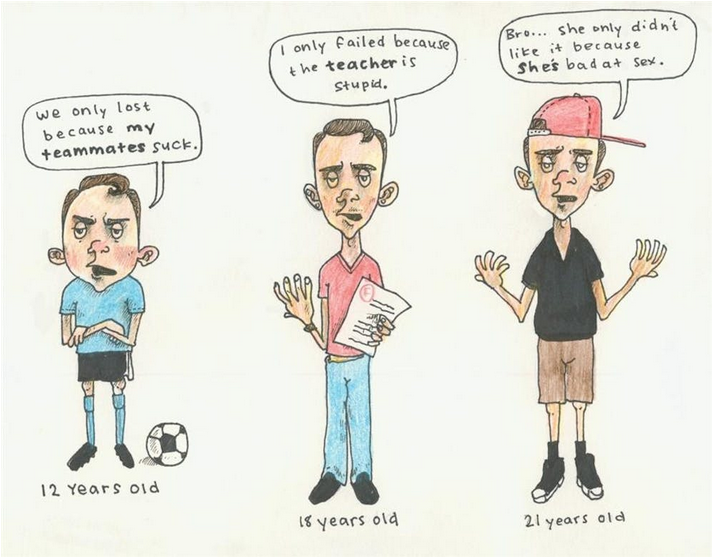 We only lost
because my
teammates suck.
12 years old
I only failed because
the teacher is
stupid.
F
18 years old
Bro... she only didn't
like it because
she's bad at sex.
21 years old